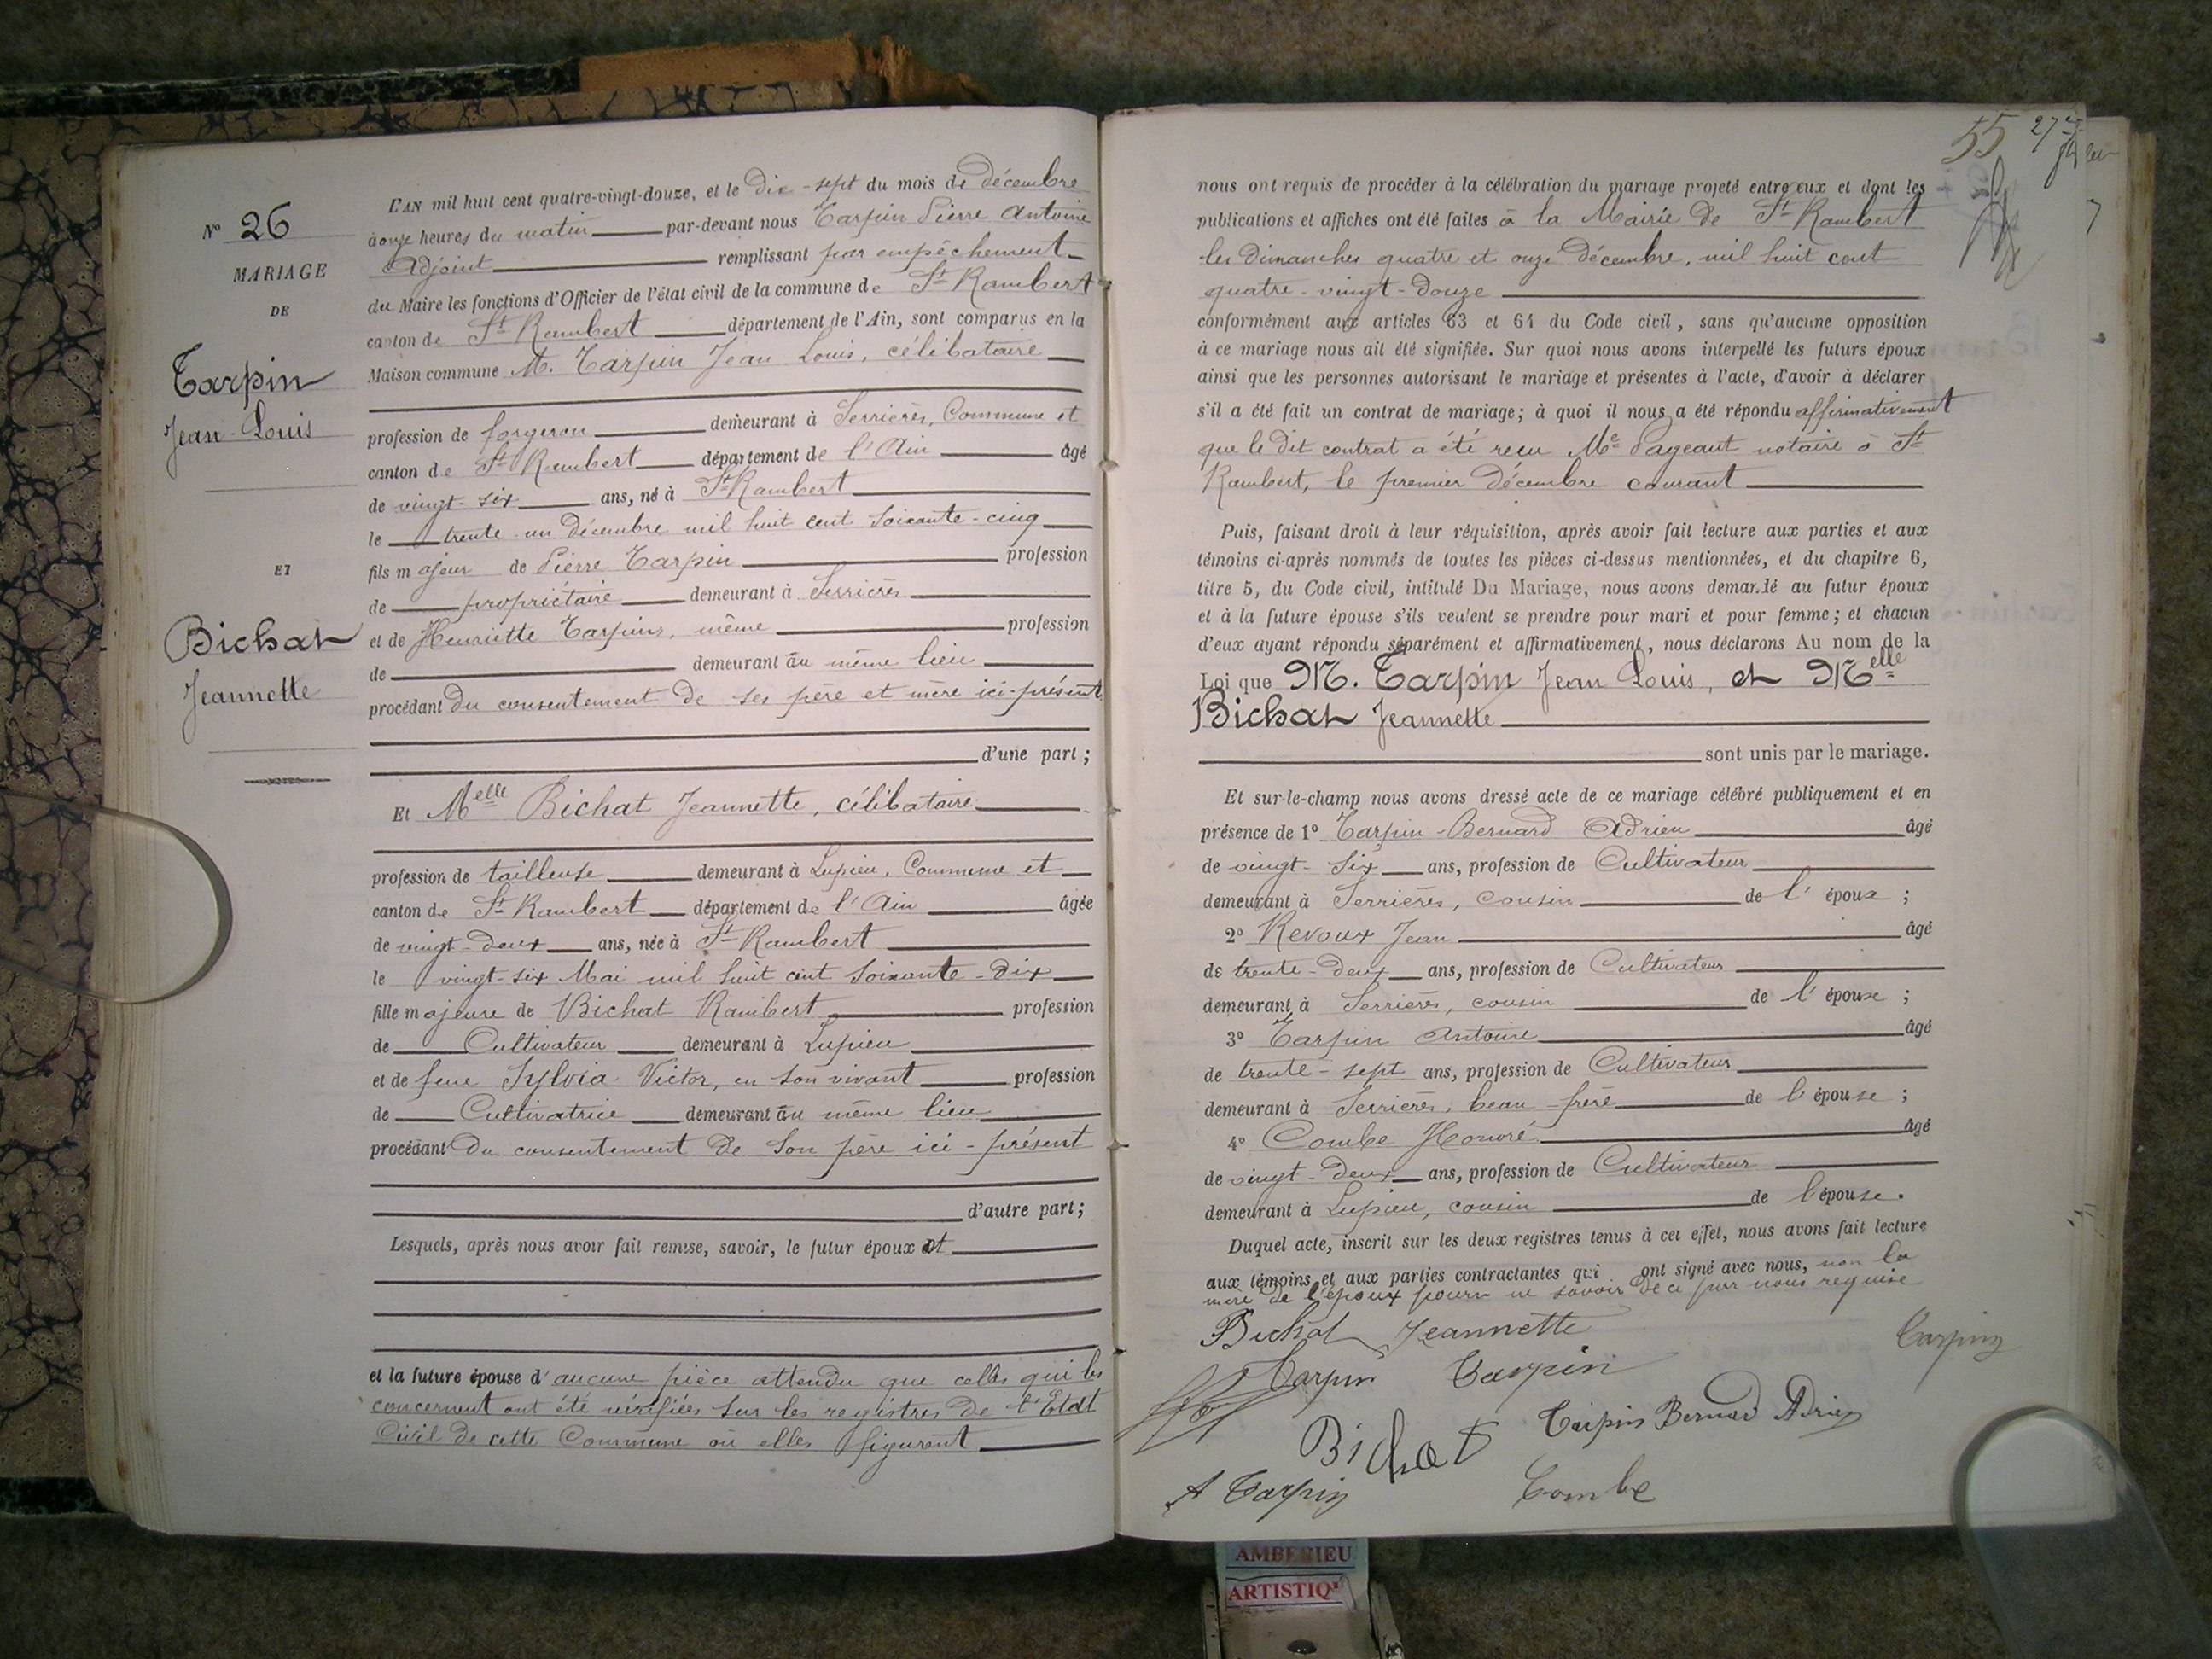 N° 26
MARIAGE
DE
Tarpin
Jean-Louis
ET
Bichat
Jeannette
L'AN mil huit cent quatre-vingt-douze, et le Dix-sept du mois de décembre
à onze heures du matin par-devant nous Tarpin Pierre Antoine
Adjoint remplissant par empêchement
du Maire les fonctions d'Officier de l'état civil de la commune de St Rambert
canton de St Rambert département de l'Ain, sont comparus en la
Maison commune M. Tarpin Jean Louis, célibataire
profession de forgeron demeurant à Serrières, Commune et
canton de St Rambert département de l'Ain âgé
de vingt-six ans, né à St Rambert
le trente-un décembre mil huit cent soixante-cinq
fils majeur de Pierre Tarpin profession
de propriétaire demeurant à Serrières
et de Henriette Tarpin, même profession
de demeurant au même lieu
procédant du consentement de ses père et mère ici-présents
d'une part ;
Et Melle Bichat Jeannette, célibataire
profession de tailleuse demeurant à Lupieu, Commune et
canton de St Rambert département de l'Ain âgée
de vingt-deux ans, née à St Rambert
le vingt-six Mai mil huit cent soixante-dix
fille majeure de Bichat Rambert profession
de Cultivateur demeurant à Lupieu
et de feue Sylvia Victor, en son vivant profession
de Cultivatrice demeurant au même lieu
procédant du consentement de son père ici-présent
d'autre part ;
Lesquels, après nous avoir fait remise, savoir, le futur époux et
et la future épouse d'aucune pièce attendu que celles qui les
concernent ont été vérifiées sur les registres de l'Etat
Civil de cette Commune où elles figurent
55
nous ont requis de procéder à la célébration du mariage projeté entre eux et dont les
publications et affiches ont été faites à la Mairie de St Rambert
les dimanches quatre et onze décembre, mil huit cent
quatre-vingt-douze
conformément aux articles 63 et 64 du Code civil, sans qu'aucune opposition
à ce mariage nous ait été signifiée. Sur quoi nous avons interpellé les futurs époux
ainsi que les personnes autorisant le mariage et présentes à l'acte, d'avoir à déclarer
s'il a été fait un contrat de mariage ; à quoi il nous a été répondu affirmativement
que le dit contrat a été reçu Me Pageaut notaire à St
Rambert, le premier décembre courant
Puis, faisant droit à leur réquisition, après avoir fait lecture aux parties et aux
témoins ci-après nommés de toutes les pièces ci-dessus mentionnées, et du chapitre 6,
titre 5, du Code civil, intitulé Du Mariage, nous avons demandé au futur époux
et à la future épouse s'ils veulent se prendre pour mari et pour femme ; et chacun
d'eux ayant répondu séparément et affirmativement, nous déclarons Au nom de la
Loi que M. Tarpin Jean Louis, et Melle
Bichat Jeannette
sont unis par le mariage.
Et sur-le-champ nous avons dressé acte de ce mariage célébré publiquement et en
présence de 1° Tarpin-Bernard Adrien âgé
de vingt-six ans, profession de Cultivateur
demeurant à Serrières, cousin de l'époux ;
2° Revoux Jean âgé
de trente-deux ans, profession de Cultivateur
demeurant à Serrières, cousin de l'épouse ;
3° Tarpin Antoine âgé
de trente-sept ans, profession de Cultivateur
demeurant à Serrières, beau-frère de l'épouse ;
4° Combe Honoré âgé
de vingt-deux ans, profession de Cultivateur
demeurant à Lupieu, cousin de l'épouse.
Duquel acte, inscrit sur les deux registres tenus à cet effet, nous avons fait lecture
aux témoins et aux parties contractantes qui ont signé avec nous, non la
mère de l'époux pour ne savoir de ce par nous requise
Bichat Jeannette
Tarpin
Tarpin Tarpin
Bichat Tarpin Bernard Adrien
A Tarpin Combe
AMBERIEU
ARTISTIQ